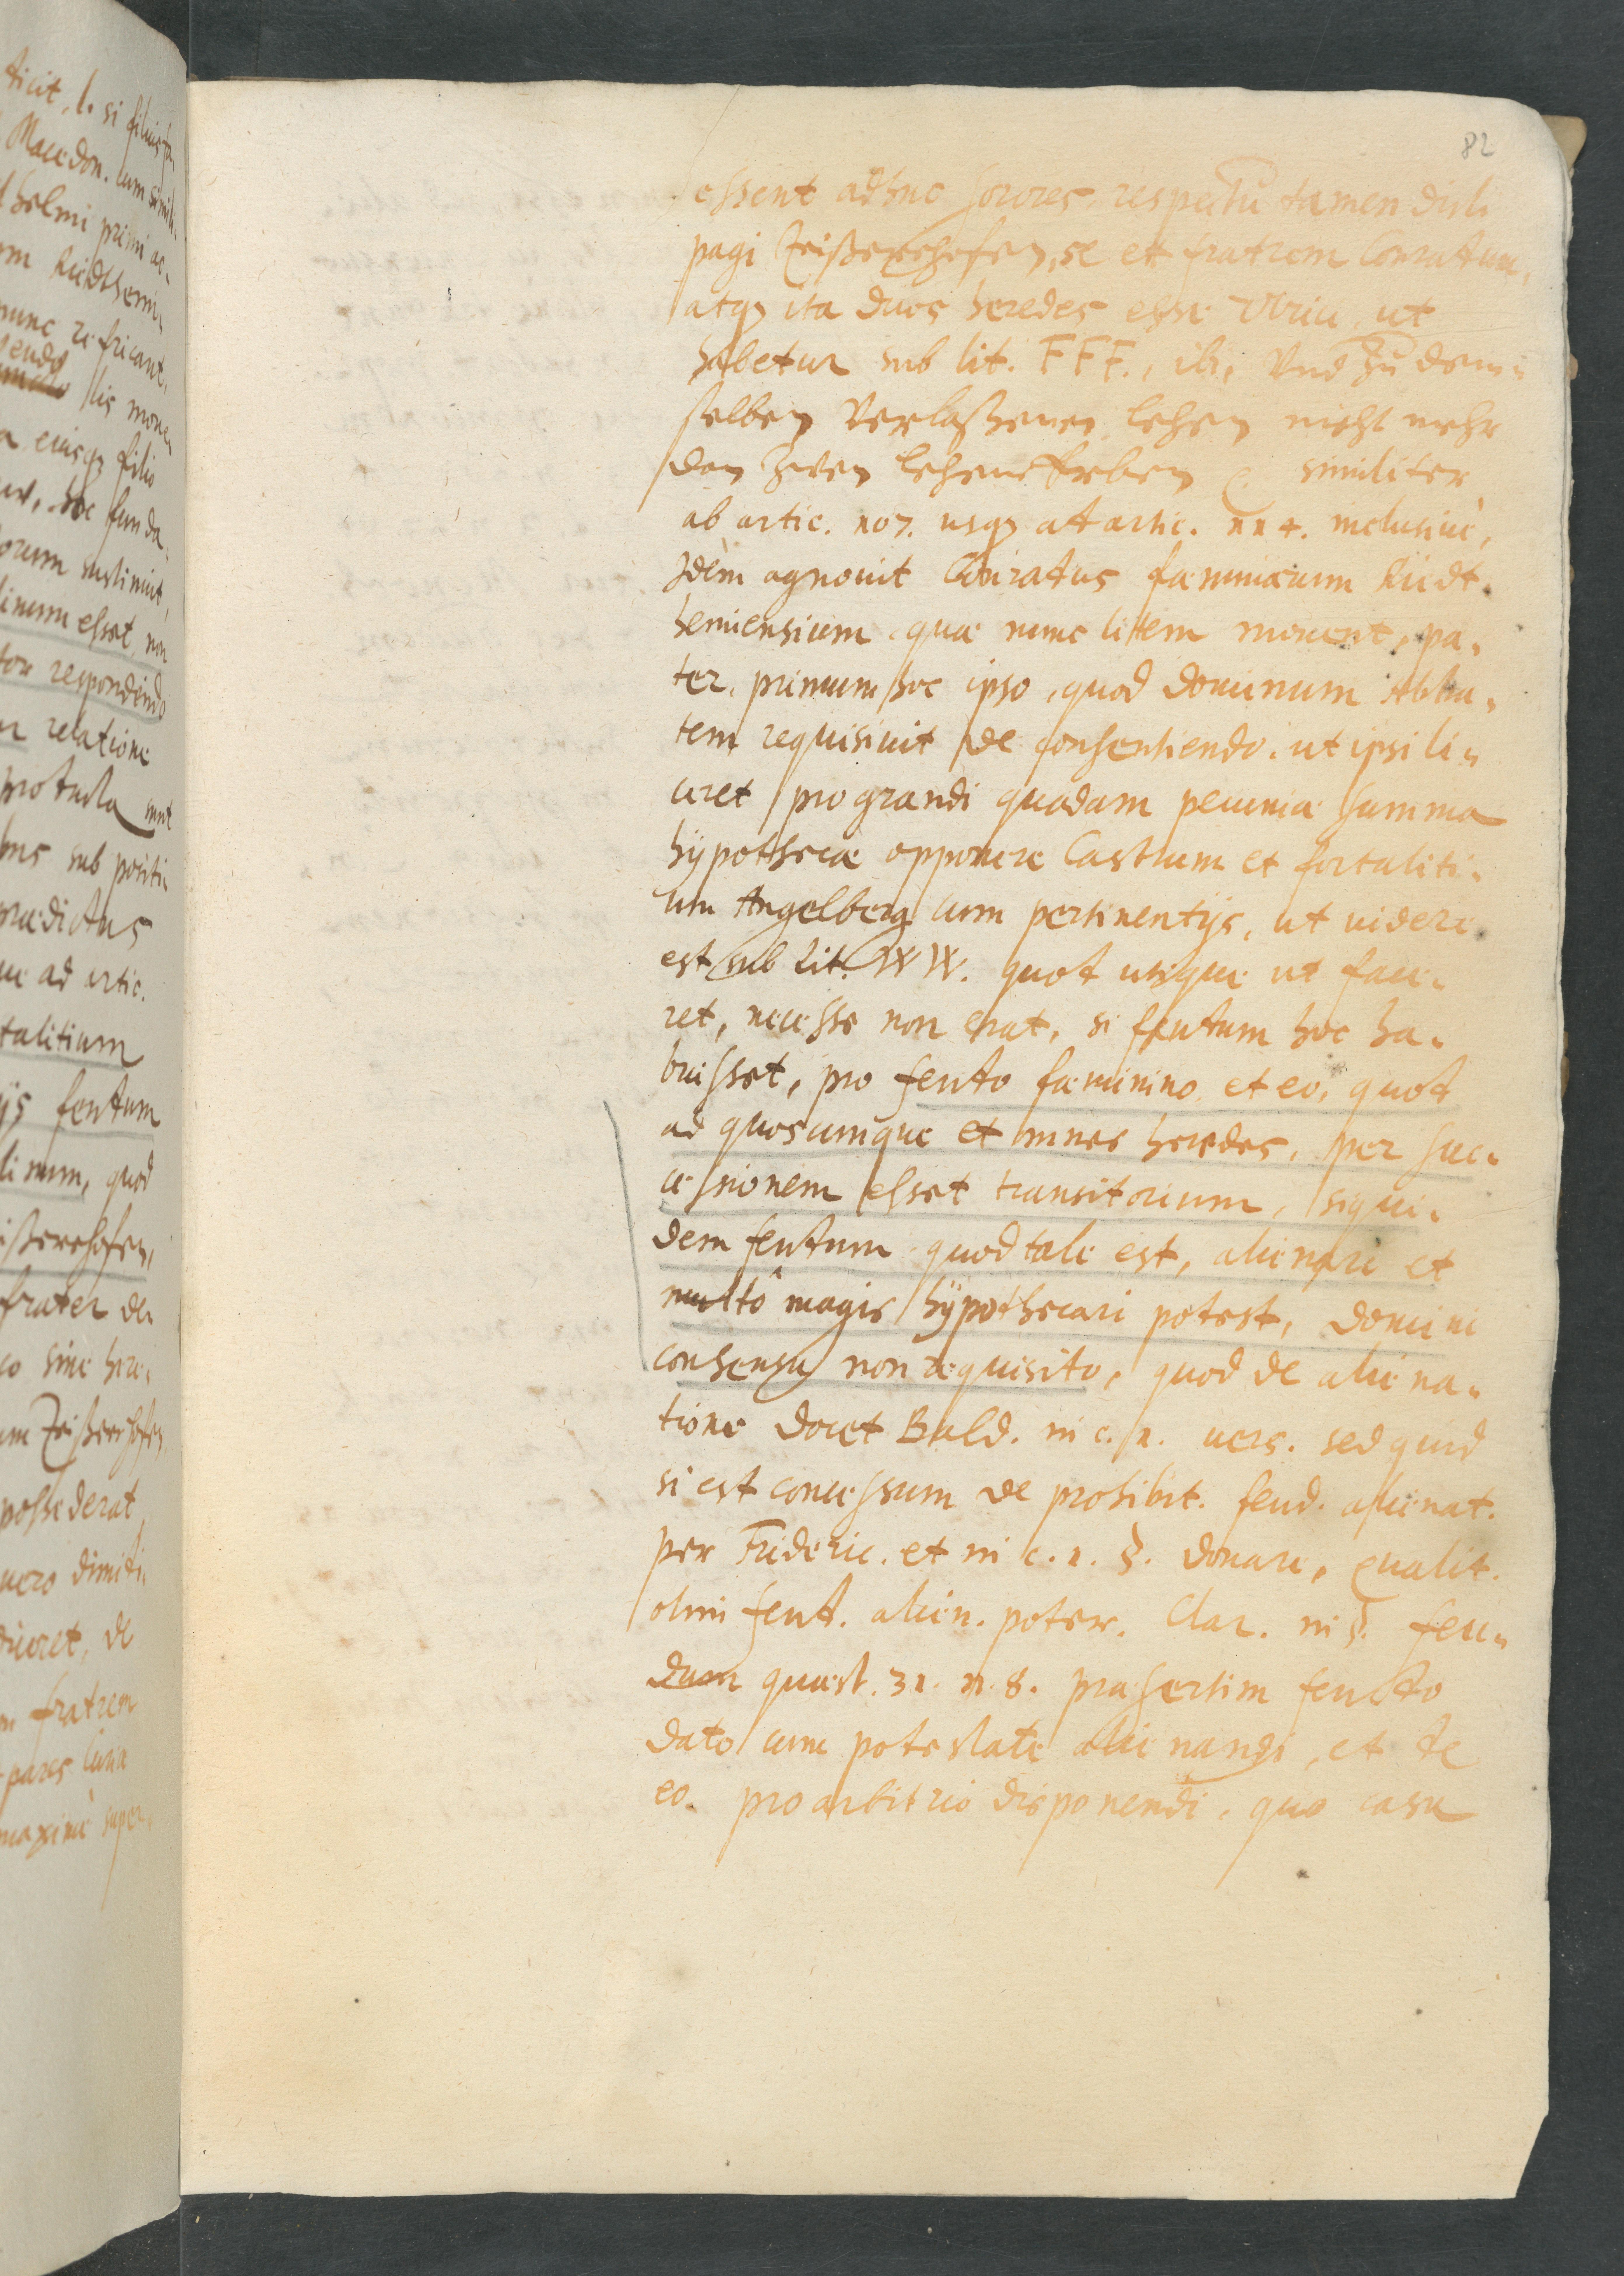 82
essent adhuc sorores, respectu tamen dicti
pagi Zeißertshofen, se et fratrem Conratum,
atq₃ ita duos heredes esse Vlrici, ut
habetur sub lit. FFF., ibi, Vnd zu dem-
selben Verlaßenen lehen nicht mehr
dan zwen lehens Erben similiter
ab artic. 107. usq₃ at artic. 114. inclusiuè,
Idem agnouit Conratus fæminarum Riedt-
hemiensium, quæ nunc litem mouent, pa-
ter, primum hoc ipso, quod dominum Abba-
tem requisiuit de consentiendo, ut ipsi li-
ceret pro grandi quadam pecuniæ summa
hÿpothecæ opponere Castrum et fortaliti-
um Angelberg cum pertinentijs, ut videre
est sub Lit. WW. quot utique ut face-
ret, necesse non erat, si feutum hoc ha-
buisset, pro feuto fæminino, et eo, quot
ad quoscumque et omnes heredes, per suc-
cessionem esset transitorium, siqui-
dem feutum quod tale est, alienari et
multò magis hÿpothecari potest, domini
consensu non requisito, quod de aliena-
tione docet Bald. in c. 1. uers. sed quid
si est concessum de prohibit. feud. alienat.
per Frideric. et in c. 1. §. donare, qualit.
olim feut. alien. poter. Clar. in §. feu-
dum quæst. 31. n. 8. præsertim feudo
dato cum potestate alienandi, et de
eo pro arbitrio disponendi, quo casu
ticit, l. si filius fa.
Macedon. cum simili-
helmi primi ac-
Riedthemi-
nunc refricant,
lis mouen
eiusq₃ filio
hoc funda-
orum sustinuit,
linum esset, non
tor respondendo
relatione
protucta sunt
sub positi-
prædictus
ad artic.
talitium
feutum
linum, quod
ißertshofen,
frater de-
sine here-
Zeißertshofen
possederat,
uero dimiti-
de
fratrem
pares Curiæ
maxime super-